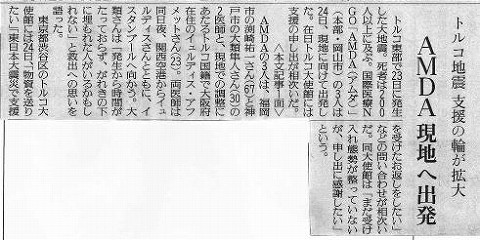 トルコ地震 支援の輪が拡大
AMDA 現地へ出発
トルコ東部で23日に発生
した大地震。死者は200
人以上に及ぶ。国際医療N
GO「AMDA（アムダ）」
（本部・岡山市）の3人は
24日、現地に向けて出発し
た。在日トルコ大使館には
支援の申し出が相次いだ。
＜本文記事1面＞
AMDAの3人は、福岡
市の渕崎祐一さん(67)と神
戸市の大類隼人さん(30)の
2医師と、現地での調整に
あたるトルコ国籍で大阪府
在住のイュルディス・アフ
メットさん(23)。両医師は
同日夜、関西空港からイュ
ルディスさんとともに、イ
スタンブールへ向かう。大
類さんは「発生から時間が
たっておらず、がれきの下
に埋もれた人がいるかもし
れない」と救出への思いを
語った。
東京都渋谷区のトルコ大
使館には24日、「物資を送り
たい」「東日本大震災で支援
を受けたお返しをしたい」
などの問い合わせが相次い
だ。同大使館は「まだ受け
入れ態勢が整っていない
が、申し出に感謝したい」
という。